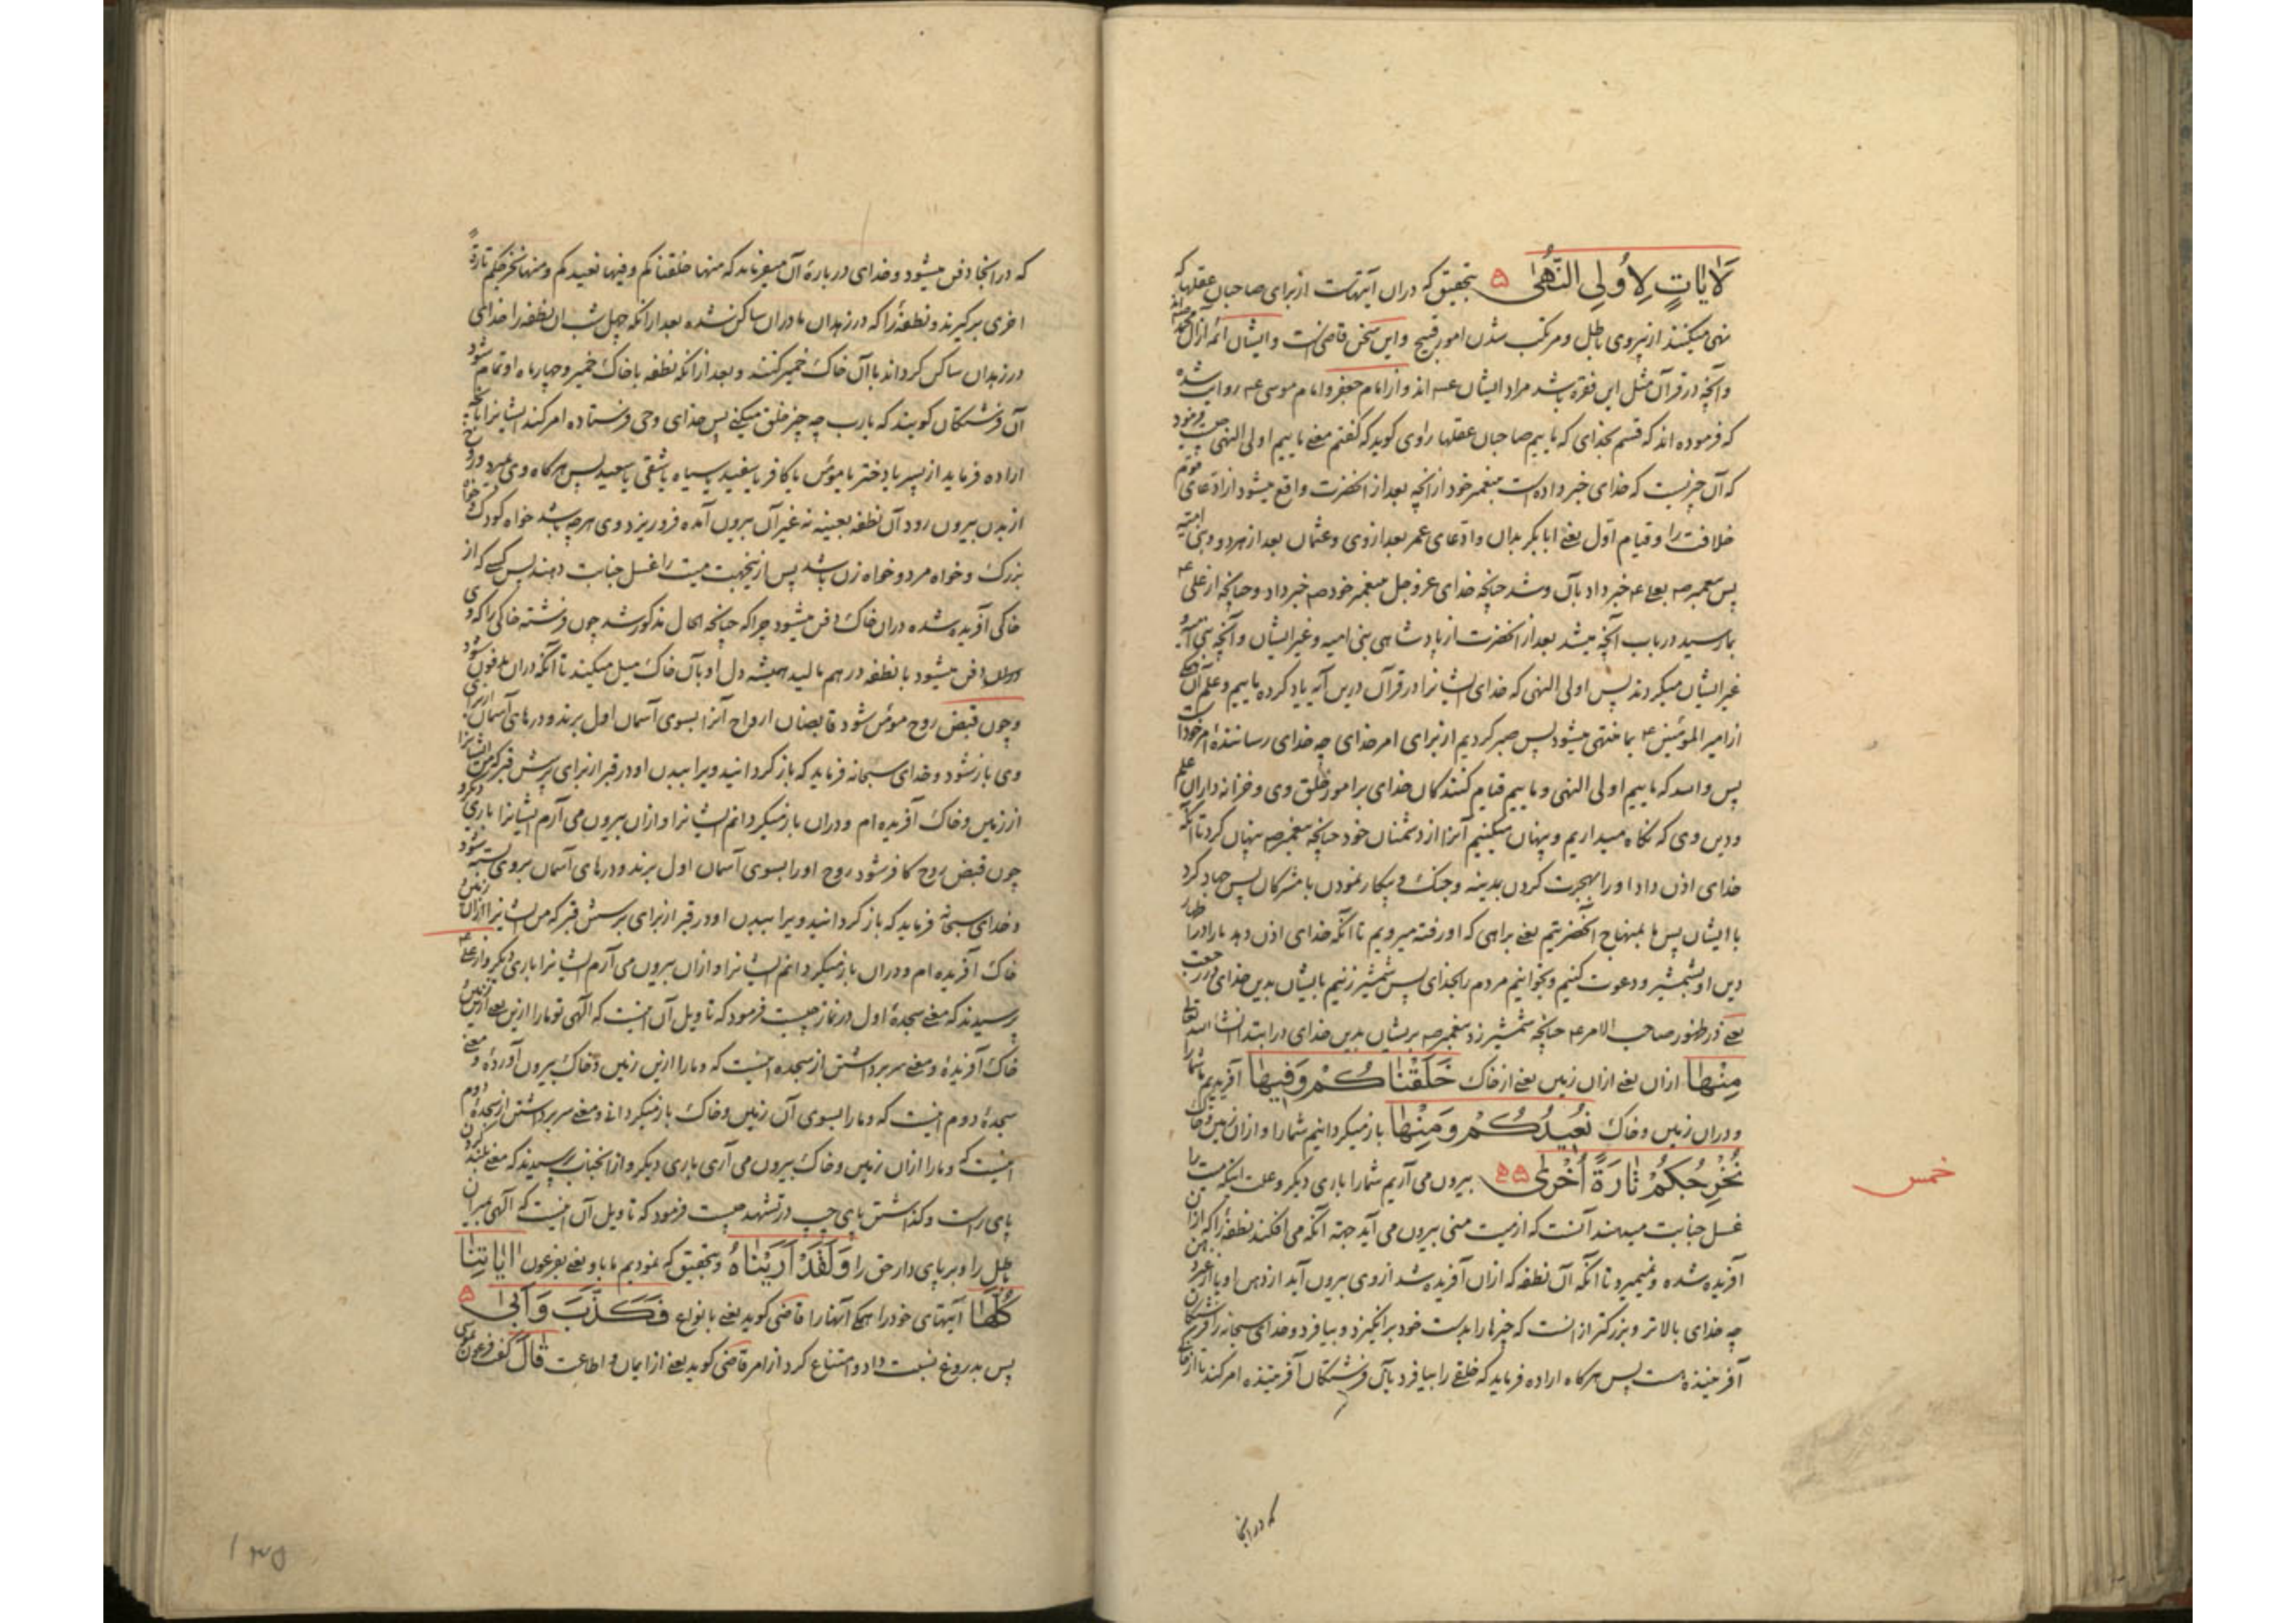 لَاٰیَاتٍ لِاُولِی النُّهٰی ۵ بتحقیق که دران آیتهاست از برای صاحبان عقلها که
نهی میکنند از پیروی باطل و مرتکب شدن امور قبیح و این سخن قاضی است و ایشان ائمه از آل محمد
و آنچه در قرآن مثل این فقره باشد مراد ایشان عـ اند و از امام جعفر و امام موسی عـ روایت شده
که فرموده اند که قسم بخدای که ماییم صاحبان عقلها راوی گوید که گفتم معنی ماییم اولی النهی چیست فرمود
که آن چیزیست که خدای خبر داده است پیغمبر خود از آنچه بعد از آنحضرت واقع میشود از ادعای مردم
خلافت را و قیام اول یعنی ابابکر بدان و ادعای عمر بعد از وی و عثمان بعد از هر دو و بنی امیه
پس پیغمبر صـ بعلی عـ خبر داد بآن و شد چنانچه خدای عز و جل پیغمبر خود صـ خبر داد و چنانچه از علی عـ
بما رسید در باب آنچه میشد بعد از آنحضرت از پادشاهی بنی امیه و غیر ایشان و آنچه بنی امیه
غیر ایشان میکردند پس اولی النهی که خدای ایشانرا در قرآن درین آیه یاد کرده ماییم و علم آن
از امیر المؤمنین عـ بما منتهی میشود پس صبر کردیم از برای امر خدای چه خدای رسانندهٔ امر خود است
پس والله که ماییم اولی النهی و ماییم قیام کنندگان خدای بر امور خلق وی و خزانه داران علم
و دین وی که نگاه میداریم و پنهان میکنیم آنرا از دشمنان خود چنانچه پیغمبر صـ پنهان کرد تا آنکه
خدای اذن داد او را بهجرت کردن بمدینه و جنک و پیکار نمودن با مشرکان پس جهاد کرد
با ایشان پس ما بمنهاج آنحضرتیم یعنی براهی که او رفته میرویم تا آنکه خدای اذن دهد ما را در اظهار
دین او بشمشیر و دعوت کنیم و بخوانیم مردم را بخدای پس شمشیر زنیم بایشان بدین خدای در رجعت
یعنی در ظهور صاحب الامر عـ چنانچه شمشیر زد پیغمبر صـ بریشان بدین خدای در ابتدا انشاء الله تعالی
مِنْهٰا ازان یعنی ازان زمین یعنی از خاک خَلَقْنٰاکُمْ وَفِیهٰا آفریدیم شما را
و دران زمین و خاک نُعِیدُکُمْ وَمِنْهٰا باز میگردانیم شما را و ازان زمین و خاک
نُخْرِجُکُمْ تٰارَةً اُخْرٰی ۵۵ بیرون می آریم شما را باری دیگر و علت اینکه میت را
خمس
غسل جنابت میدهند آنست که از میت منی بیرون می آید جهة آنکه می افکند نطفهٔ را که ازان
آفریده شده و نمیمیرد تا آنکه آن نطفه که ازان آفریده شد از وی بیرون آید از دهن او یا از غیر دهن
چه خدای بالاتر و بزرکتر از آنست که چیزها را بدست خود برانگیزد و بیافرد و خدای سبحانه را فرشتگان
آفریننده هست پس هرگاه اراده فرماید که خلقی را بیافرد بآن فرشتگان آفریننده امر کند تا از خاک
که در آنجا
که در آنجا دفن میشود و خدای در بارهٔ آن میفرماید که منها خلقناکم وفیها نعیدکم ومنها نخرجکم تارةً
اخری برگیرند و نطفهٔ را که در زهدان مادران ساکن شده بعد از آنکه چهل شب آن نطفه را خدای
در زهدان ساکن گرداند با آن خاک خمیر کنند و بعد از آنکه نطفه با خاک خمیر و چهار ماه او تمام شود
آن فرشتگان گویند که یا رب چه چیز خلق میکنی پس خدای وحی فرستاده امر کند ایشانرا بآنچه
اراده فرماید از پسر یا دختر یا مؤمن یا کافر یا سفید یا سیاه یا شقی یا سعید پس هرگاه وی میرد و روح
از بدن بیرون رود آن نطفه بعینه نه غیر آن بیرون آمده فرو ریزد وی هر چه باشد خواه کودک و خواه
بزرک و خواه مرد و خواه زن باشد پس ازینجهت میت را غسل جنابت دهند پس کسی که از
خاکی آفریده شده دران خاک دفن میشود چرا که چنانچه الحال مذکور شد چون فرشته خاکی را که وی
دران دفن میشود با نطفه در هم مالید همیشه دل او بآن خاک میل میکند تا آنکه دران مدفون شود
و چون قبض روح مؤمن شود قابضان ارواح آنرا بسوی آسمان اول برند و درهای آسمان از برای
وی باز شود و خدای سبحانه فرماید که باز گردانید ویرا ببدن او در قبر از برای پرسش قبر که من ایشانرا
از زمین و خاک آفریده ام و دران باز میگردانم ایشانرا و ازان بیرون می آرم ایشانرا باری دیگر و
چون قبض روح کافر شود روح او را بسوی آسمان اول برند و درهای آسمان بروی بسته شود
و خدای سبحانه فرماید که باز گردانید ویرا ببدن او در قبر از برای پرسش قبر که من ایشانرا ازان زمین و
خاک آفریده ام و دران باز میگردانم ایشانرا و ازان بیرون می آرم ایشانرا باری دیگر و از علی عـ
پرسیدند که معنی سجدهٔ اول در نماز چیست فرمود که تاویل آن اینست که الهی تو ما را ازین یعنی ازین زمین و
خاک آفریدهٔ و معنی سر برداشتن از سجده اینست که و ما را ازین زمین و خاک بیرون آوردهٔ و معنی
سجدهٔ دوم اینست که و ما را بسوی آن زمین و خاک باز میگردانی و معنی سر برداشتن از سجدهٔ دوم
اینست که و ما را ازان زمین و خاک بیرون می آری باری دیگر و از آنجناب پرسیدند که معنی بلند کردن
پای راست و گذاشتن پای چپ در تشهد چیست فرمود که تاویل آن اینست که الهی بمیران
باطل را و بر پای دار حق را وَلَقَدْ اَرَیْنٰاهُ و بتحقیق که نمودیم ما باو یعنی بفرعون اٰیٰاتِنٰا
کُلَّهٰا آیتهای خود را همگی آنها را قاضی گوید یعنی بانواع فَکَذَّبَ وَاَبٰی ۵
پس بدروغ نسبت داد و امتناع کرد از امر قاضی گوید یعنی از ایمان و اطاعت قٰالَ گفت فرعون بموسی
۱۳۵